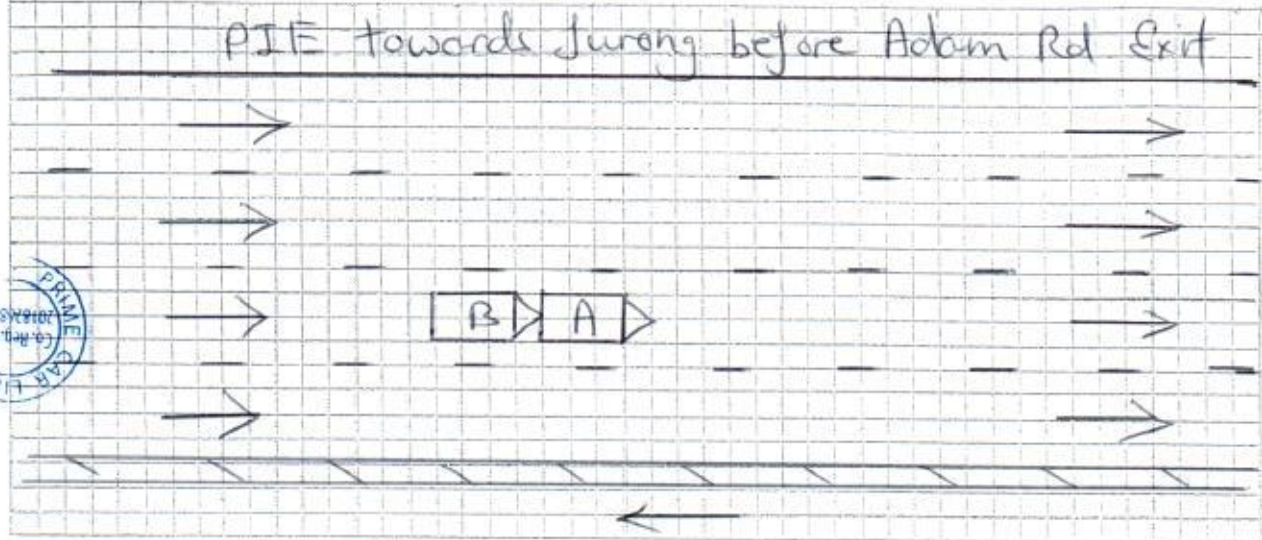 PIE towards Jurong before Adam Rd Exit
B A
PRIME CAR
Co. Reg.